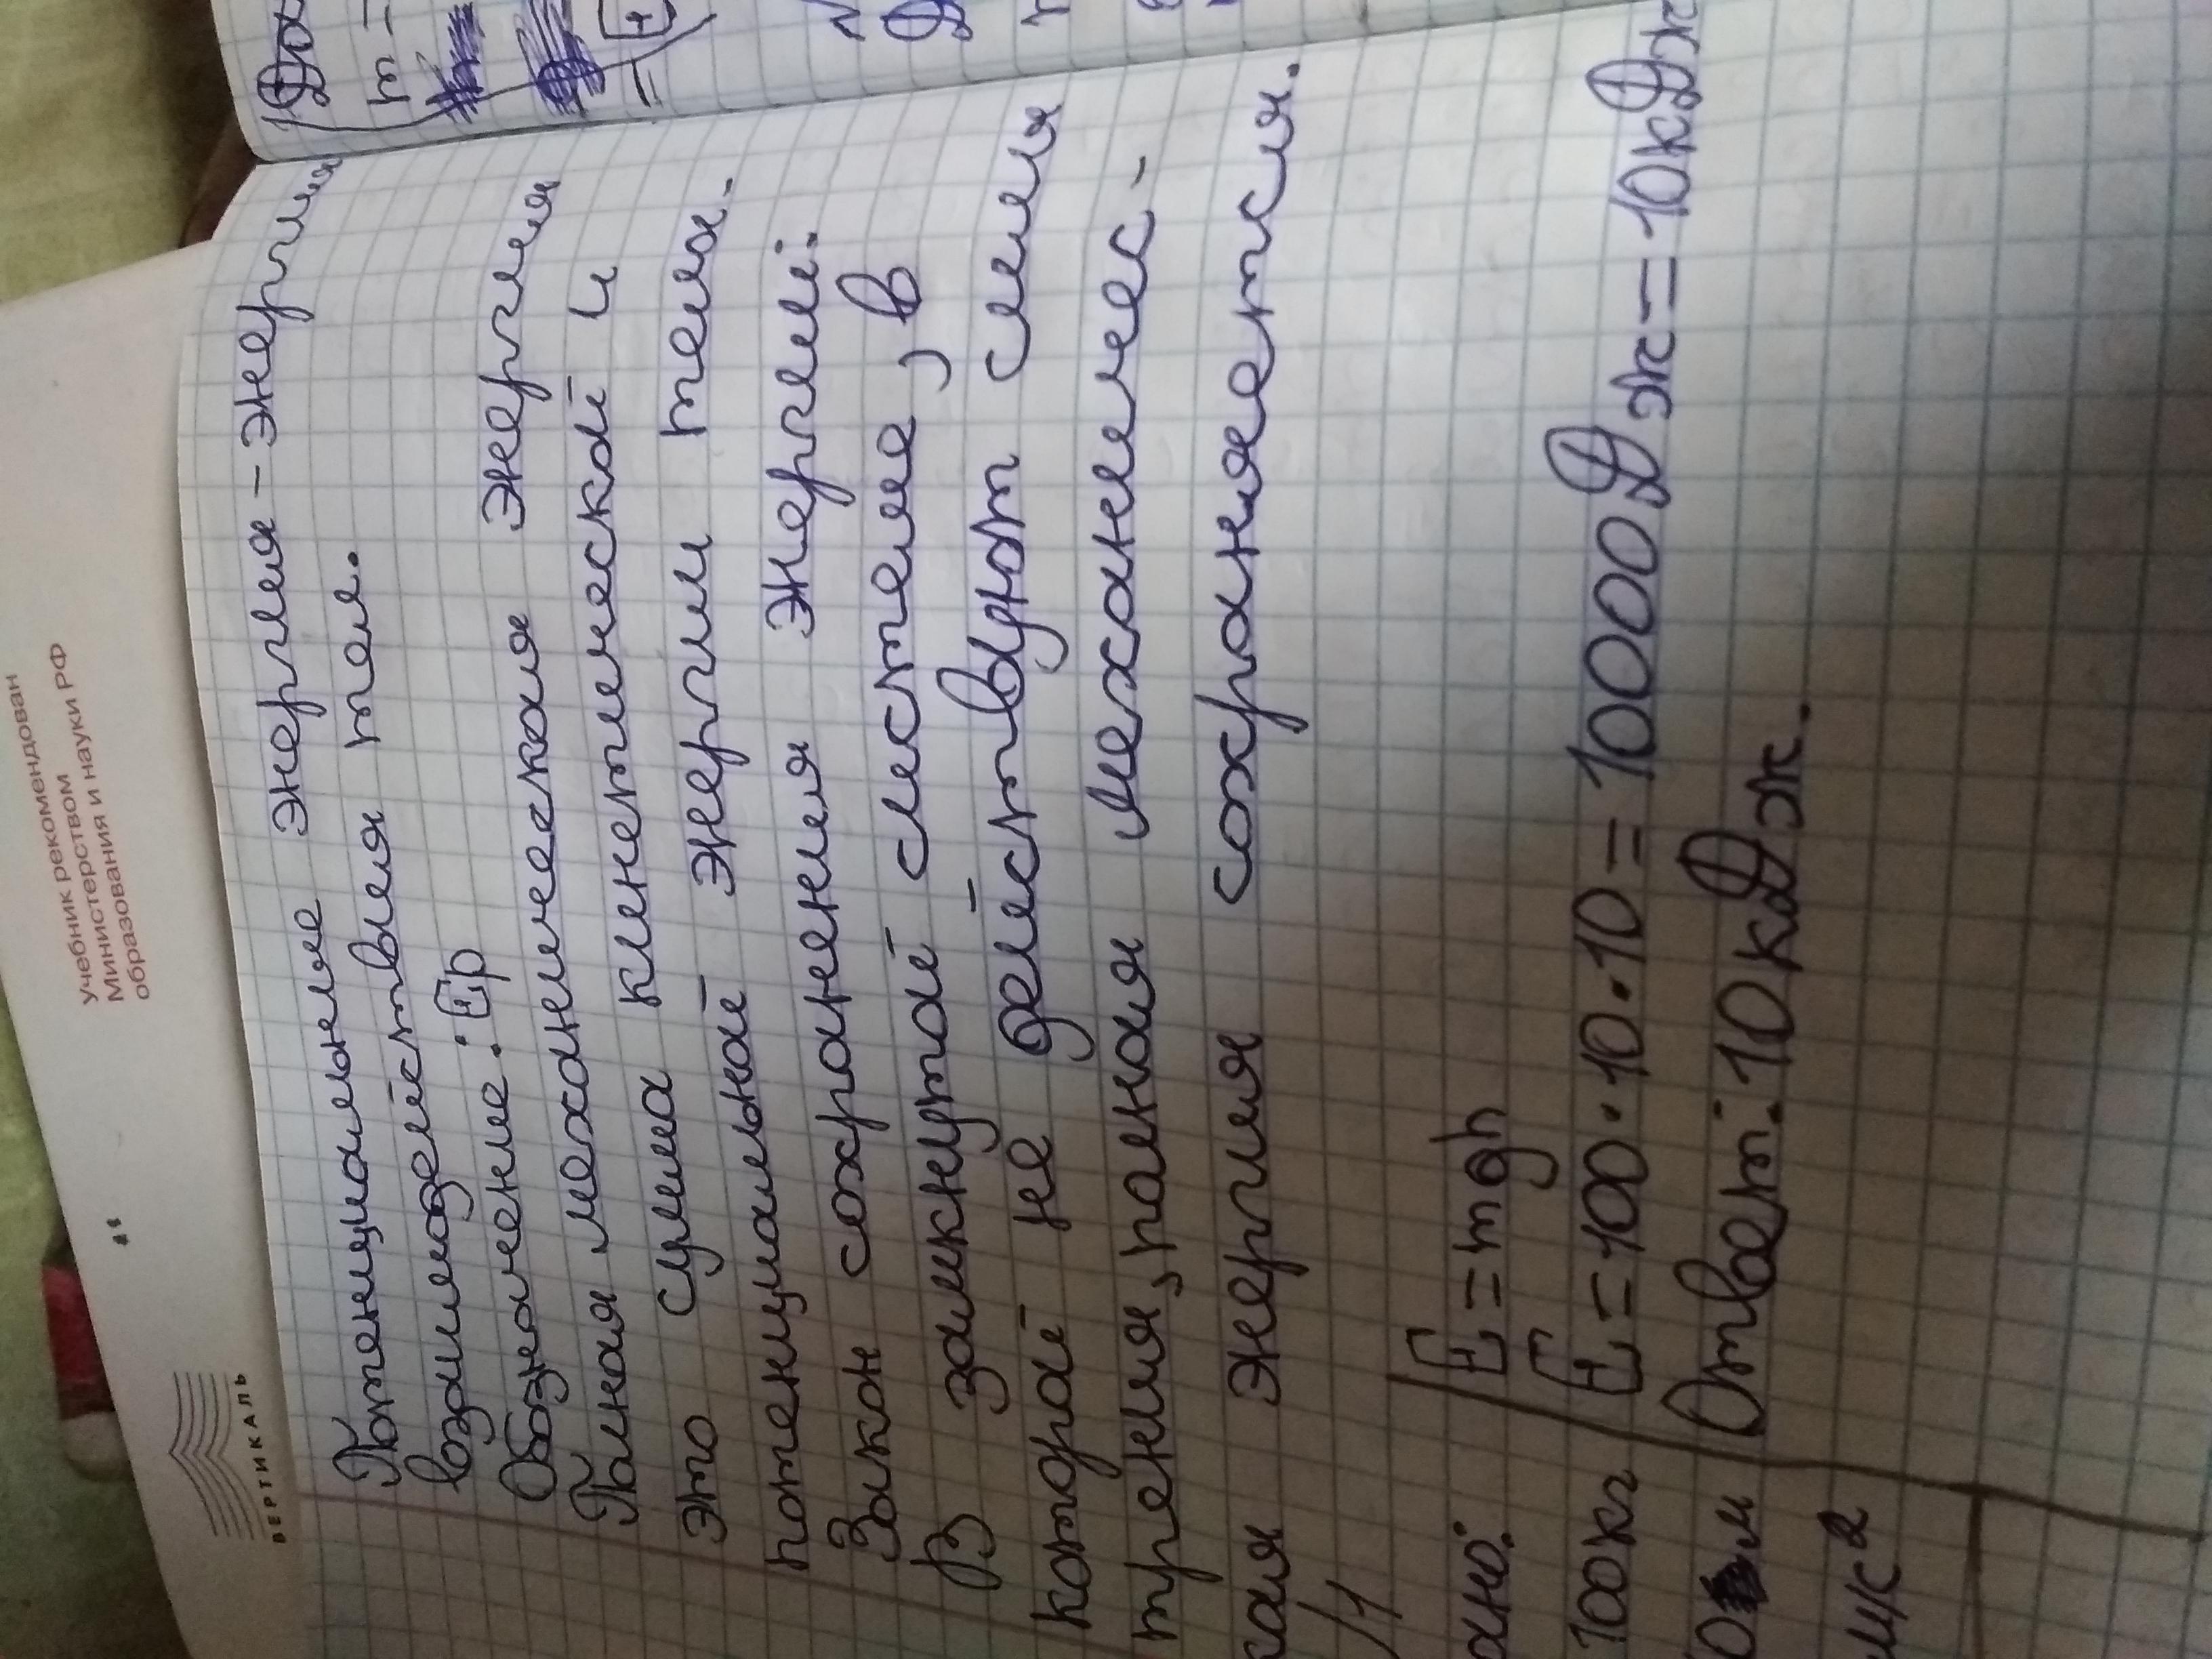 Учебник рекомендован
Министерством
образования и науки РФ
ВЕРТИКАЛЬ
Потенциальные энергия - энергия
взаимодействия тел.
Обозначение: Ep
Полная механическая энергия
это сумма кинетической и
потенциальной энергии тела.
Закон сохранения энергии:
В замкнутой системе, в
которой не действуют силы
трения, полная механичес-
кая энергия сохраняется.
√1
ано:
100кг
0 м
м/с²
E=mgh
E=100·10·10=10000Дж=10кДж
Ответ: 10кДж.
m=